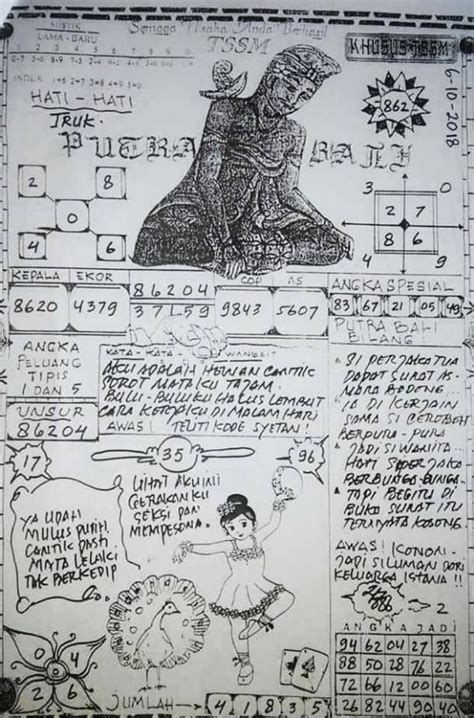 MISTIK
LAMA - BARU
Semoga Usaha Anda Berhasil
TSSM
KHUSUS TSSM
1 2 3 4 5 6 7 8 9 0
INDEX 1=6 2=7 3=8 4=9 5=0
HATI - HATI
TRUK.
862
6-10-2018
PUTRA BALI
2 8
0
4 6
3 0
2 7
8 6
4 9
KEPALA EKOR
8620 4379
86204
37159
COP AS
9843 5607
ANGKA SPESIAL
83 67 21 05 49
ANGKA
PELUANG
TIPIS
1 DAN 5
UNSUR
86204
KATA - KATA WANGSIT
AKU ADALAH HEWAN CANTIK
SOROT MATAKU TAJAM.
BULU - BULUKU HALUS LEMBUT
CARA KERJAKU DI MALAM HARI
AWAS! TELITI KODE SYETAN!
PUTRA BALI
BILANG
SI PERJAKA TUA
DAPAT SURAT AS-
MARA BODONG...
IA DI KERJAIN
SAMA SI CEROBOH
BERPURA - PURA
JADI SI WANITA..
HATI SI PERJAKA
BERBUNGA-BUNGA
TAPI BEGITU DI
BUKA SURAT ITU
TERNYATA KOSONG.
AWAS! KONON-
JADI SILUMAN DARI
KELUARGA ISTANA!!
17
35
96
YA UDAH
MULUS PUTIH.
CANTIK PASTI
MATA LELAKI
TAK BERKEDIP
LIHAT AKU INI
GERAKANKU
SEKSI DAN
MEMPESONA.
2
ANGKA JADI
94 62 04 27 38
88 50 28 76 22
72 66 12 00 60
26 82 44 90 40
0 4
2 6
JUMLAH 4 1 8 3 5